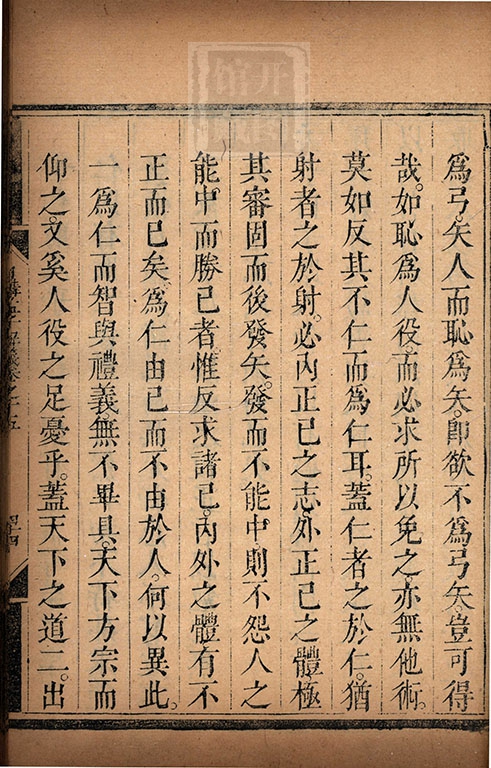 爲弓。矢人而恥爲矢。卽欲不爲弓矢。豈可得
哉。如恥爲人役。而必求所以免之。亦無他術。
莫如反其不仁而爲仁耳。蓋仁者之於仁。猶
射者之於射。必內正己之志。外正己之體。極
其審固而後發矢。發而不能中。則不怨人之
能。中而勝己者。惟反求諸己。內外之體有不
正而已矣。爲仁由己而不由於人。何以異此。
一爲仁而智與禮義無不畢具。天下方宗而
仰之。又奚人役之足憂乎。蓋天下之道二。出